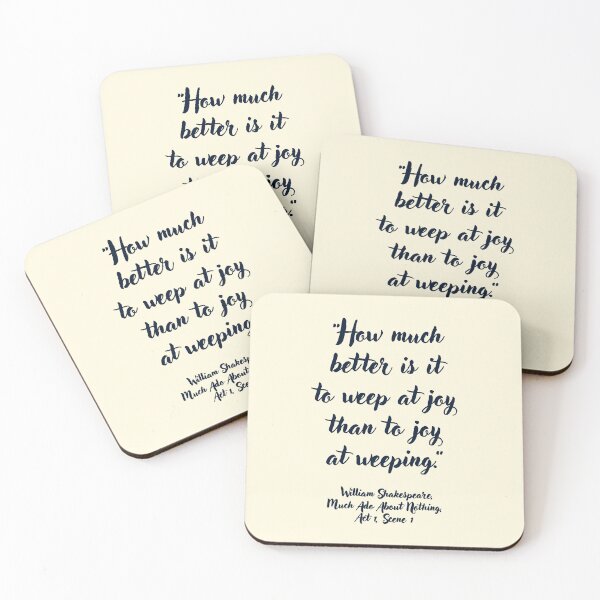 "How much
better is it
to weep at joy
joy
"How much
better is it
to weep at joy
than to joy
at weeping."
"How much
better is it
to weep at joy
than to joy
at weeping
William
Much Ado About
Act 1,
"How much
better is it
to weep at joy
than to joy
at weeping."
William Shakespeare,
Much Ado About Nothing,
Act 1, Scene 1